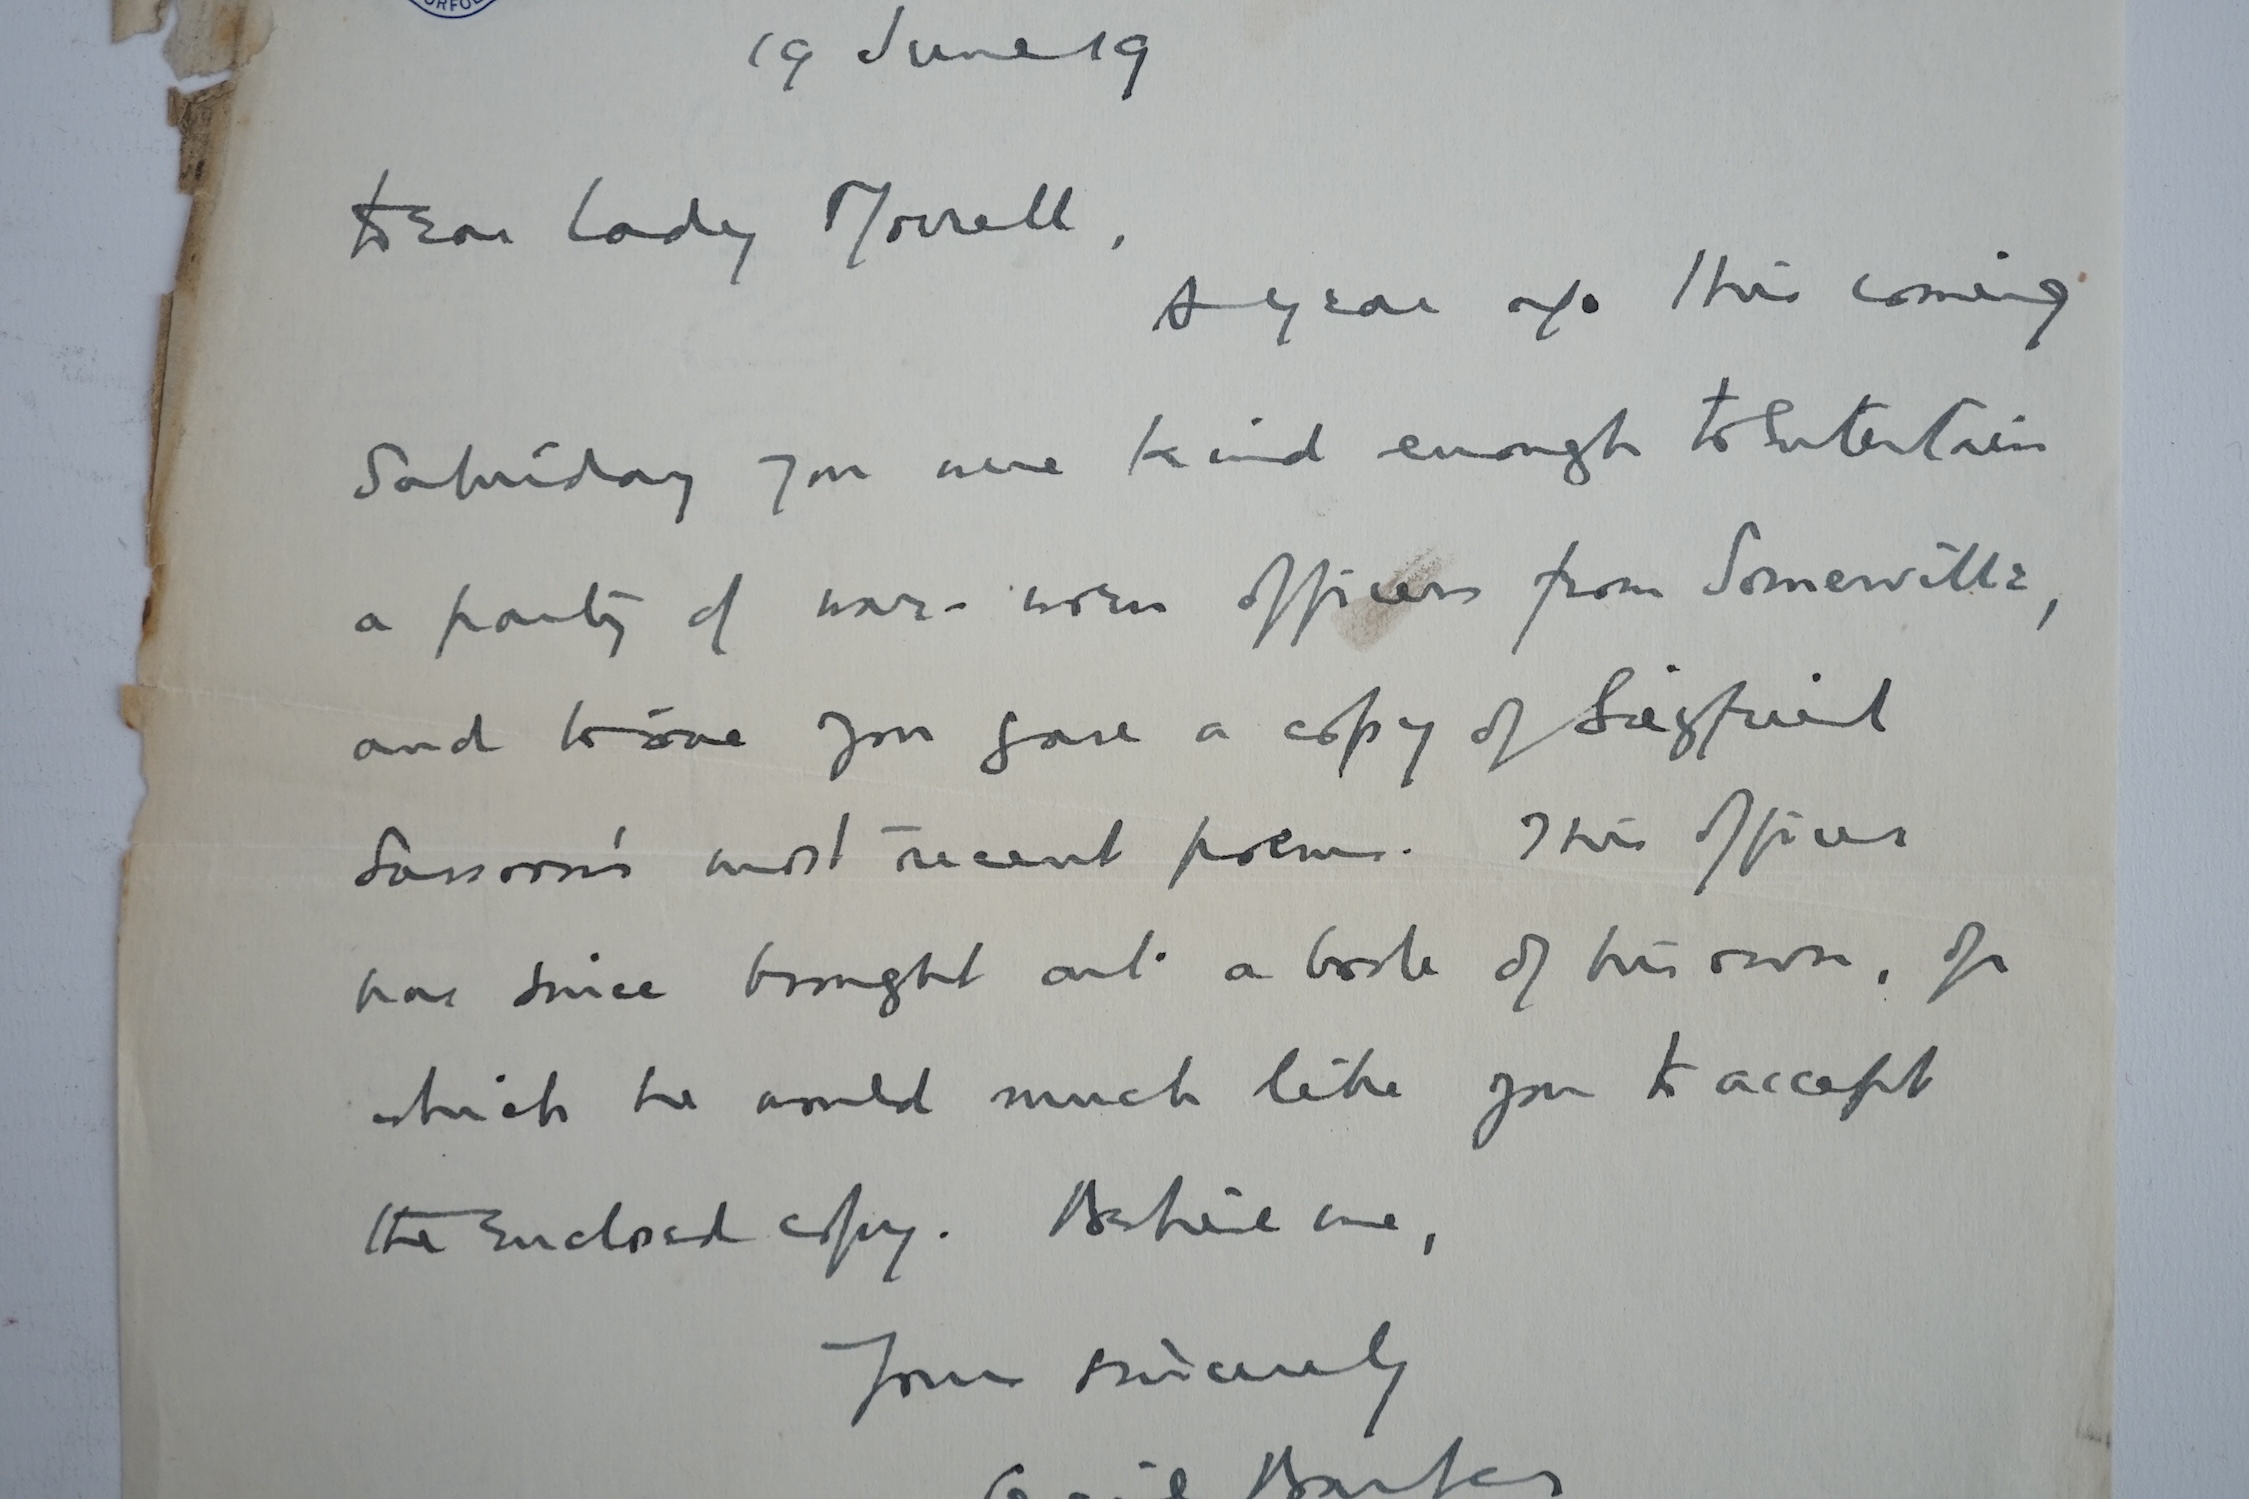 19 June 19
Dear Lady Morrell,
A year ago this coming
Saturday you were kind enough to entertain
a party of war-worn officers from Somerville,
and to one you gave a copy of Siegfried
Sassoon's most recent poems. This officer
has since brought out a book of his own, of
which he would much like you to accept
the enclosed copy. Believe me,
Yours sincerely
Cecil